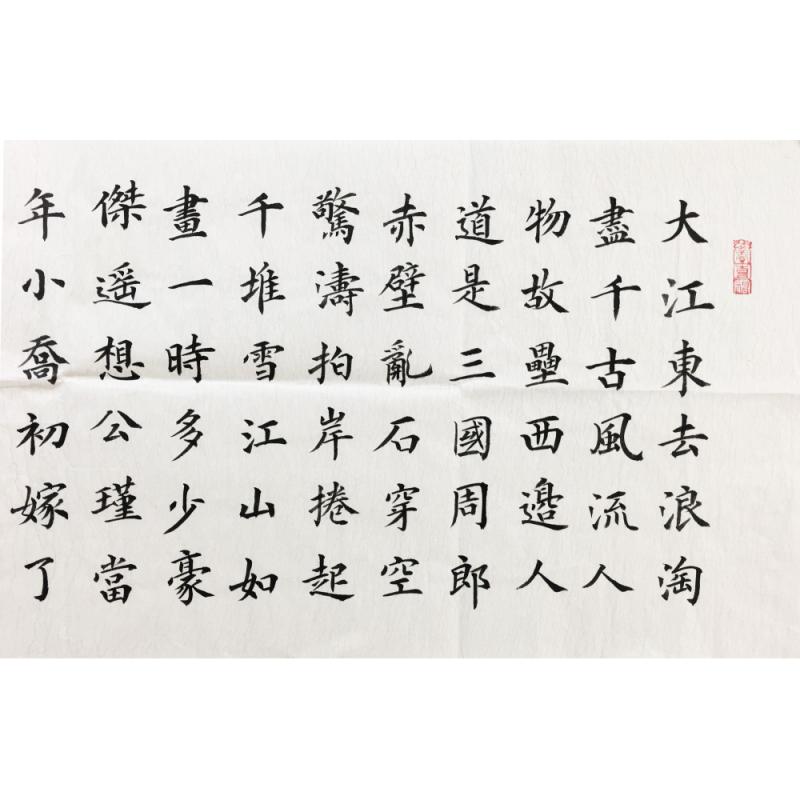 大江東去浪淘
盡千古風流人
物故壘西邊人
道是三國周郎
赤壁亂石穿空
驚濤拍岸捲起
千堆雪江山如
畫一時多少豪
傑遥想公瑾當
年小喬初嫁了